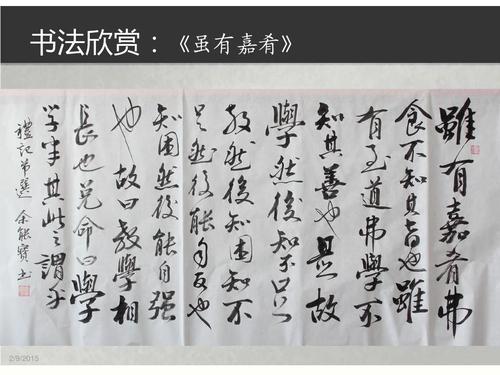 书法欣赏：《虽有嘉肴》
雖有嘉肴弗
食不知其旨也雖
有至道弗學不
知其善也是故
學然後知不足
教然後知困知不
足然後能自反也
知困然後能自强
也故曰教學相
長也兑命曰學
学半其此之謂乎
禮記节選 余能寶书
2/9/2015